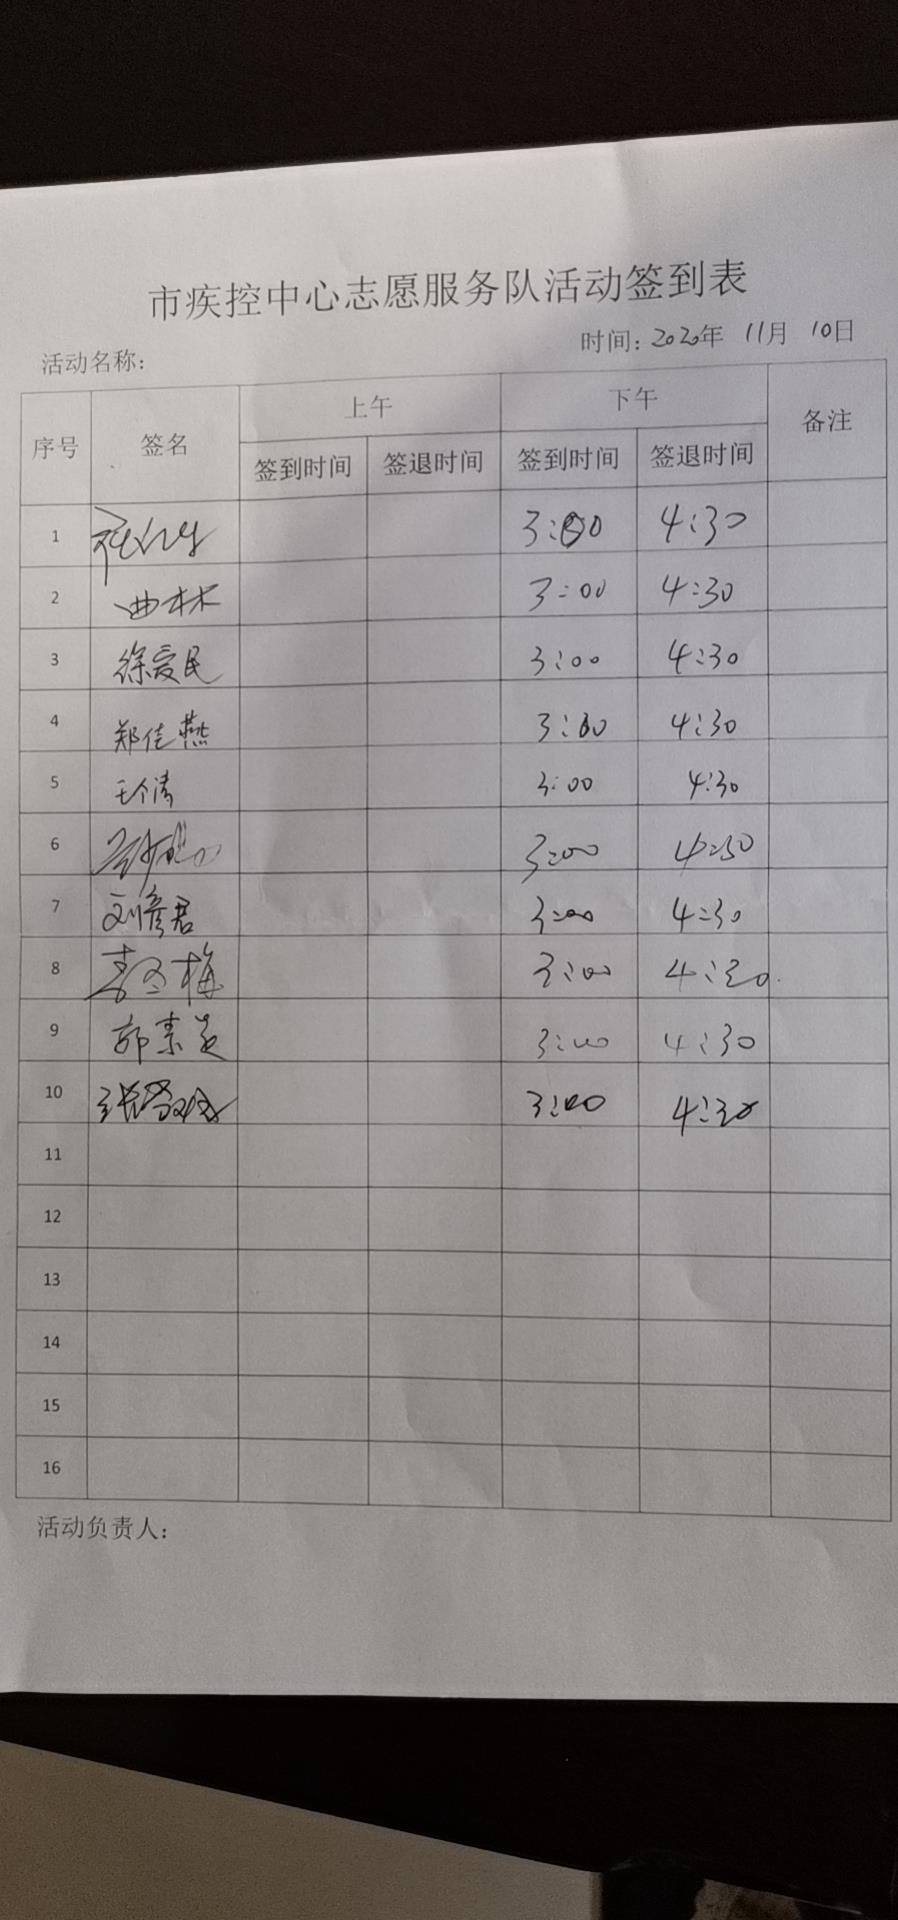 市疾控中心志愿服务队活动签到表
活动名称： 时间：2020年 11月 10日
序号 签名 上午 下午 备注
签到时间 签退时间 签到时间 签退时间
1 3:00 4:30
2 曲林 3:00 4:30
3 徐爱民 3:00 4:30
4 郑佳燕 3:00 4:30
5 3:00 4:30
6 3:00 4:30
7 刘彦君 3:00 4:30
8 李冬梅 3:00 4:30
9 郭素芝 3:00 4:30
10 3:00 4:30
11
12
13
14
15
16
活动负责人：